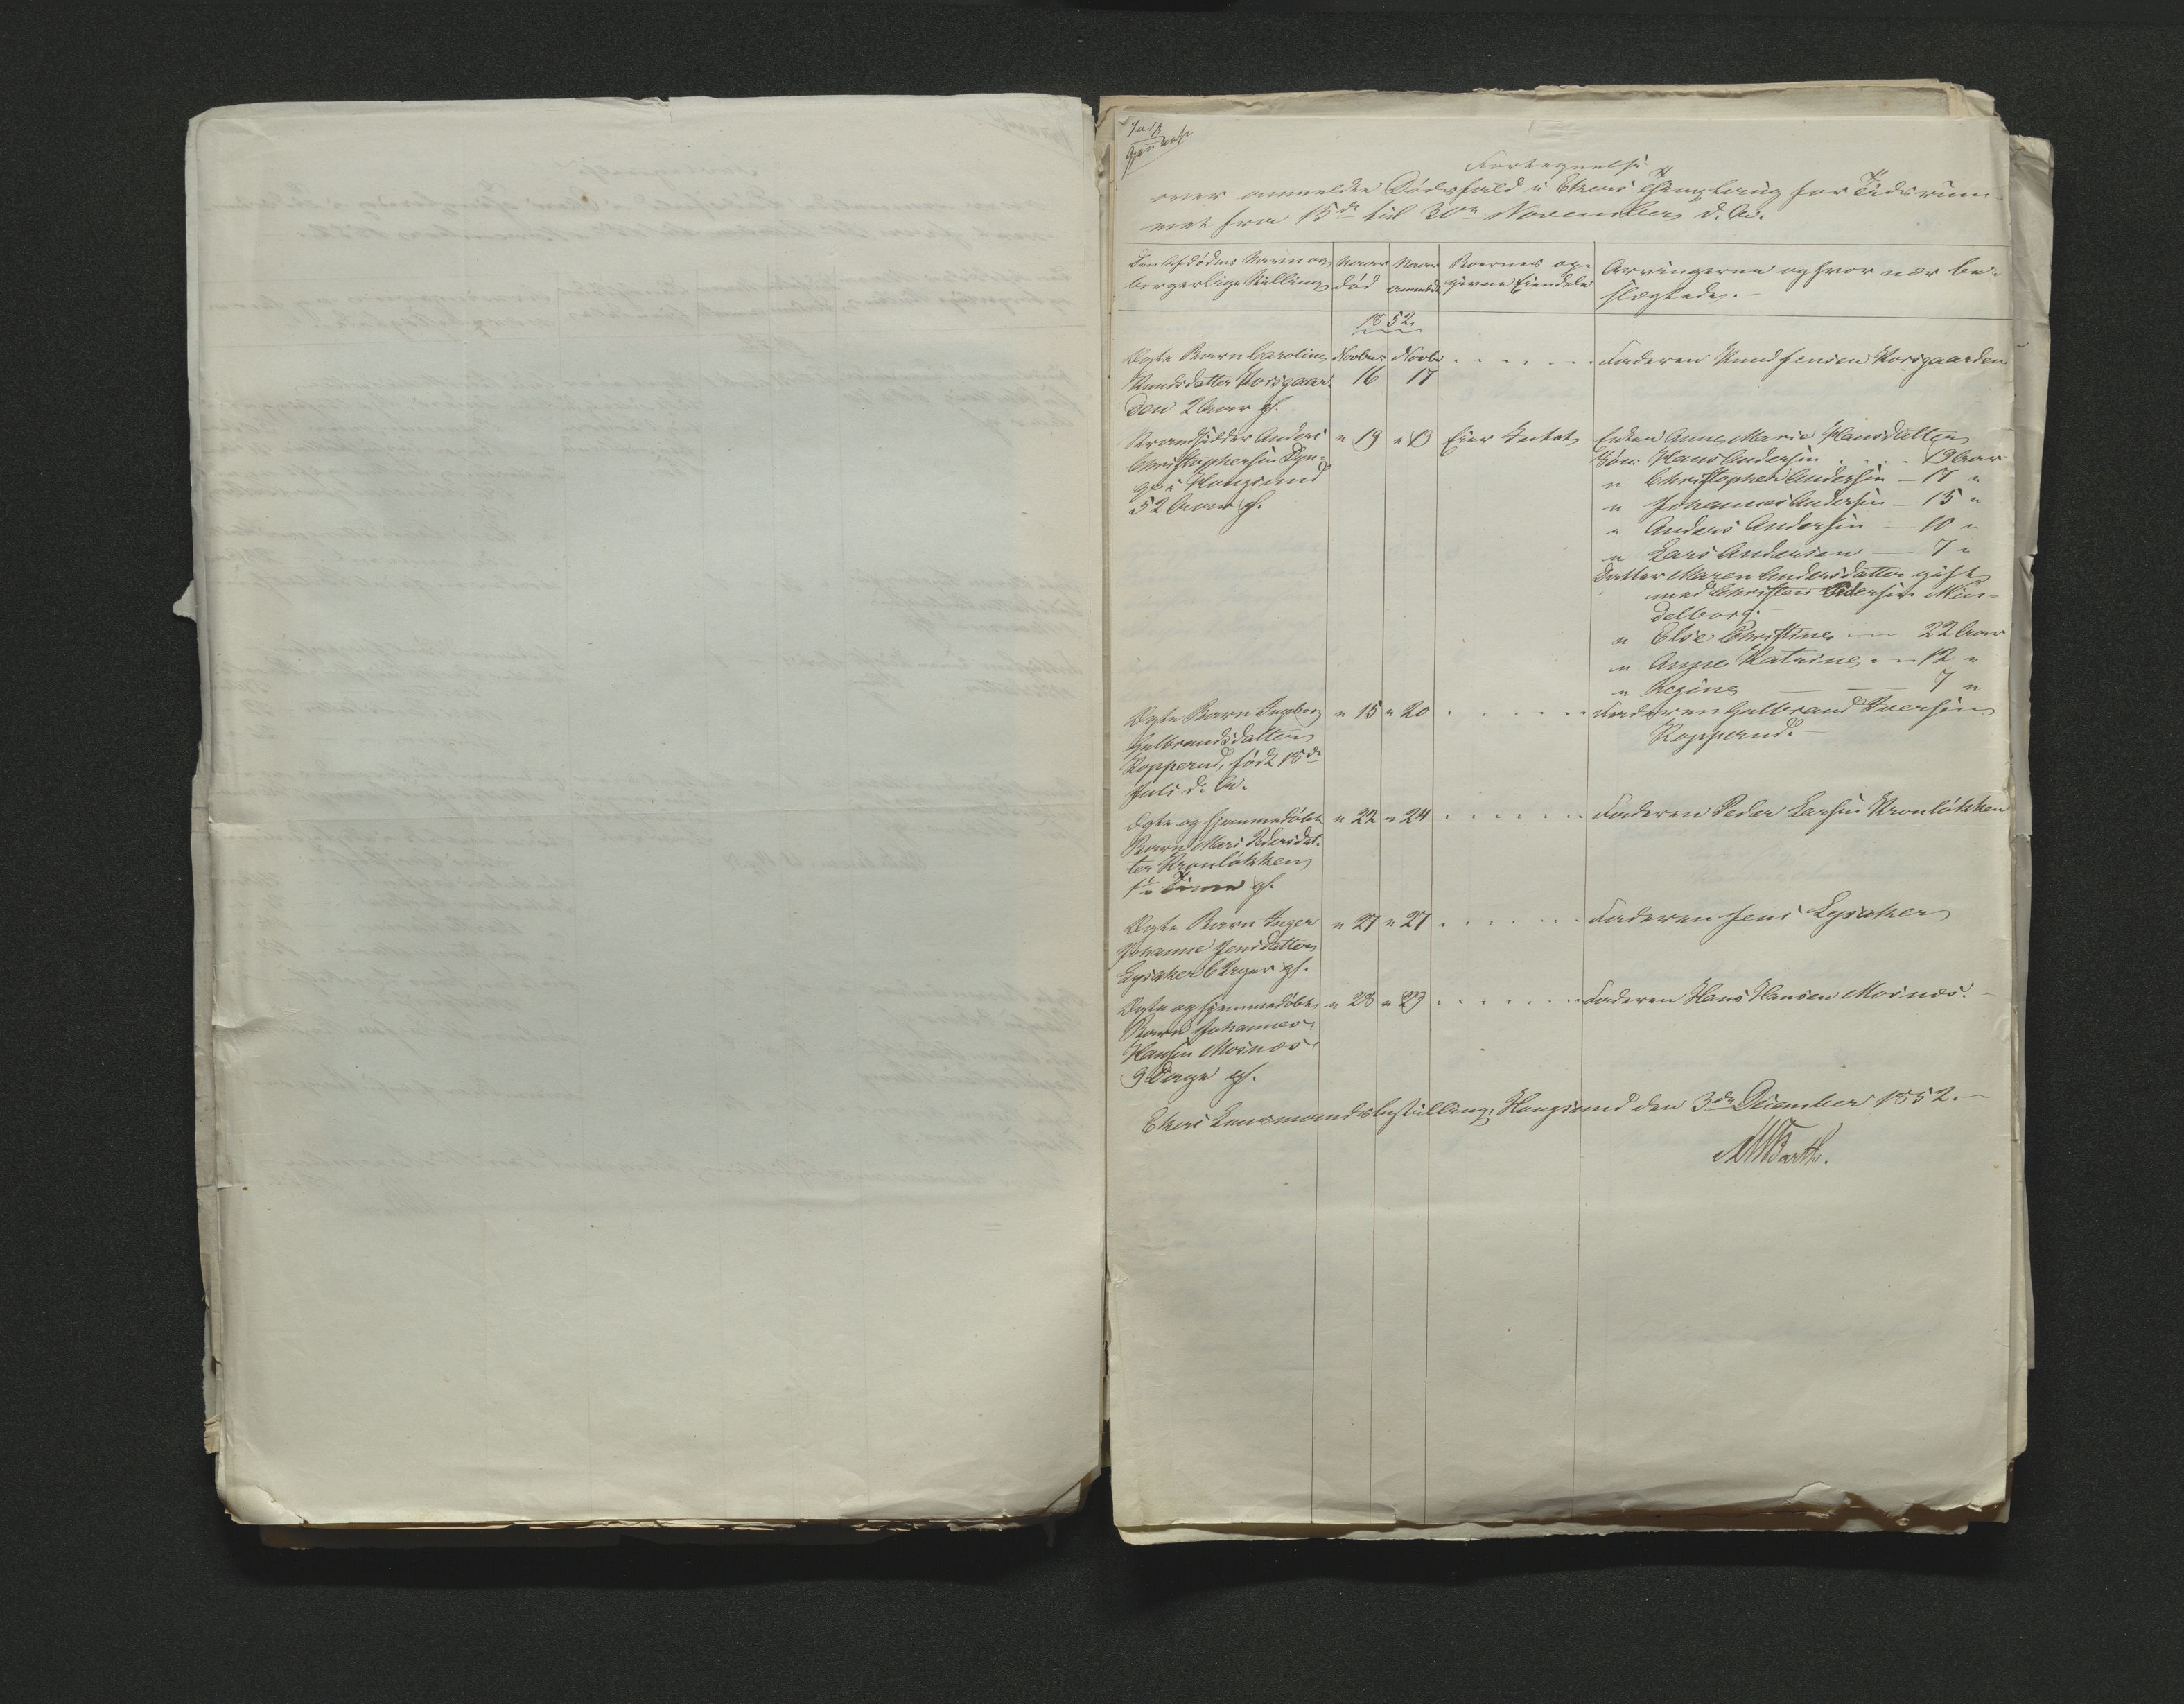 Fortegnelse
over anmeldte Dödsfald i Ekers Thinglaug for Tidsrum-
met fra 15de til 30te November d. A.
Den Afdödes Navn og
borgerlige Stilling
Naar
död
Naar
anmeldt
Boernes op-
givne Eiendele
Arvingerne og hvor nær be-
slægtede.
1852
Ægte Barn Caroline
Knudsdatter Korsgaar-
den 2 Aar gl.
Novbr.
16
Novbr
17
Faderen Knud Jensen Korsgaarden
Strandsidder Anders
Christophersen
i Hougsund
52 Aar gl.
" 19
" 19
Eier Intet
Enken Anne Marie Hansdatter
Sön: Hans Andersen 19 Aar
" Christopher Andersen — 17 "
" Johannes Andersen — 15 "
" Anders Andersen — 10 "
" Lars Andersen — 7 "
Datter Maren Andersdatter gift
med Christen Pedersen Min-
delborg.
" Else Christine — 22 Aar
" Anne Katrine — 12 "
" Regine — 7 "
Ægte Barn Ingeborg
Gulbrandsdatter
Kopperud, födt 18de
Juli d. A.
" 15
" 20
Faderen Gulbrand Iversen
Kopperud.
Ægte og hjemmedöbt
Barn Mari Pedersdat-
ter Kronlökken
gl.
" 22
" 24
Faderen Peder Larsen Kronlökken
Ægte Barn Inger
Johanne Jensdatter
Lysaker 6 Uger gl.
" 27
" 27
Faderen Jens Lysaker
Ægte og hjemmedöbt
Barn Johannes
Hansen Mosnæs
9 Dage gl.
" 28
" 29
Faderen Hans Hansen Mosnæs.
Ekers Lensmandsbestilling, Hougsund den 3de December 1852.
Barth.